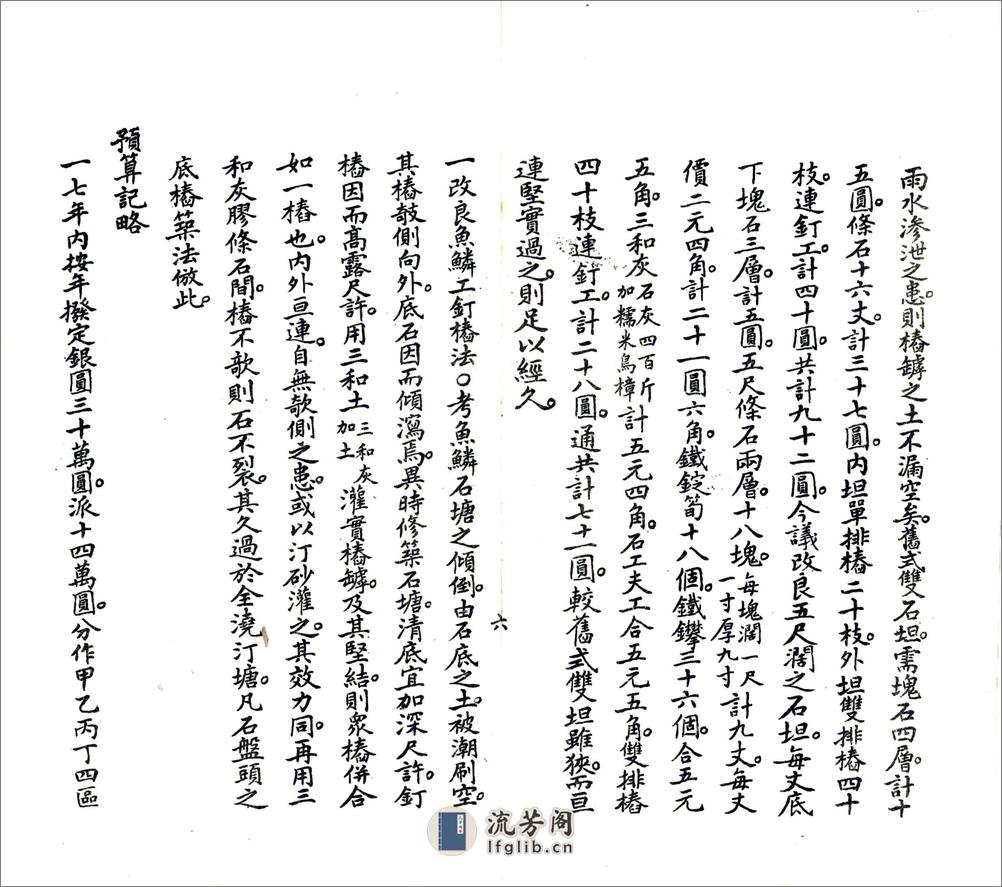 雨水渗泄之患。則樁罅之土不漏空矣。舊式雙石坦。需塊石四層。計十
五圓。條石十六丈。計三十七圓。内坦單排樁二十枝。外坦雙排樁四十
枝。連釘工計四十圓。共計九十二圓。今議改良五尺濶之石坦。每丈底
下塊石三層。計五圓。五尺條石兩層。十八塊。每塊濶一尺一寸厚九寸計九丈。每丈
價二元四角。計二十一圓六角。鐵錠筍十八個。鐵鑻三十六個。合五元
五角。三和灰石灰四百斤加糯米鳥樟計五元四角。石工夫工合五元五角。雙排樁
四十枝連釘工。計二十八圓。通共計七十一圓。較舊式雙坦雖狹。而亘
連堅實過之。則足以經久。
六
一改良魚鱗工釘樁法○考魚鱗石塘之傾倒。由石底之土。被潮刷空。
其樁攲側向外。底石因而傾瀉焉。異時修築石塘。清底宜加深尺許。釘
樁因而高露尺許。用三和土三和灰加土灌實樁罅。及其堅結。則衆樁併合
如一樁也。内外亘連。自無欹側之患。或以汀砂灌之。其效力同。再用三
和灰膠條石間。樁不欹則石不裂。其久過於全澆汀塘。凡石盤頭之
底樁築法倣此。
預算記略
一七年内按年撥定銀圓三十萬圓。派十四萬圓。分作甲乙丙丁四區
流芳阁
lfglib.cn